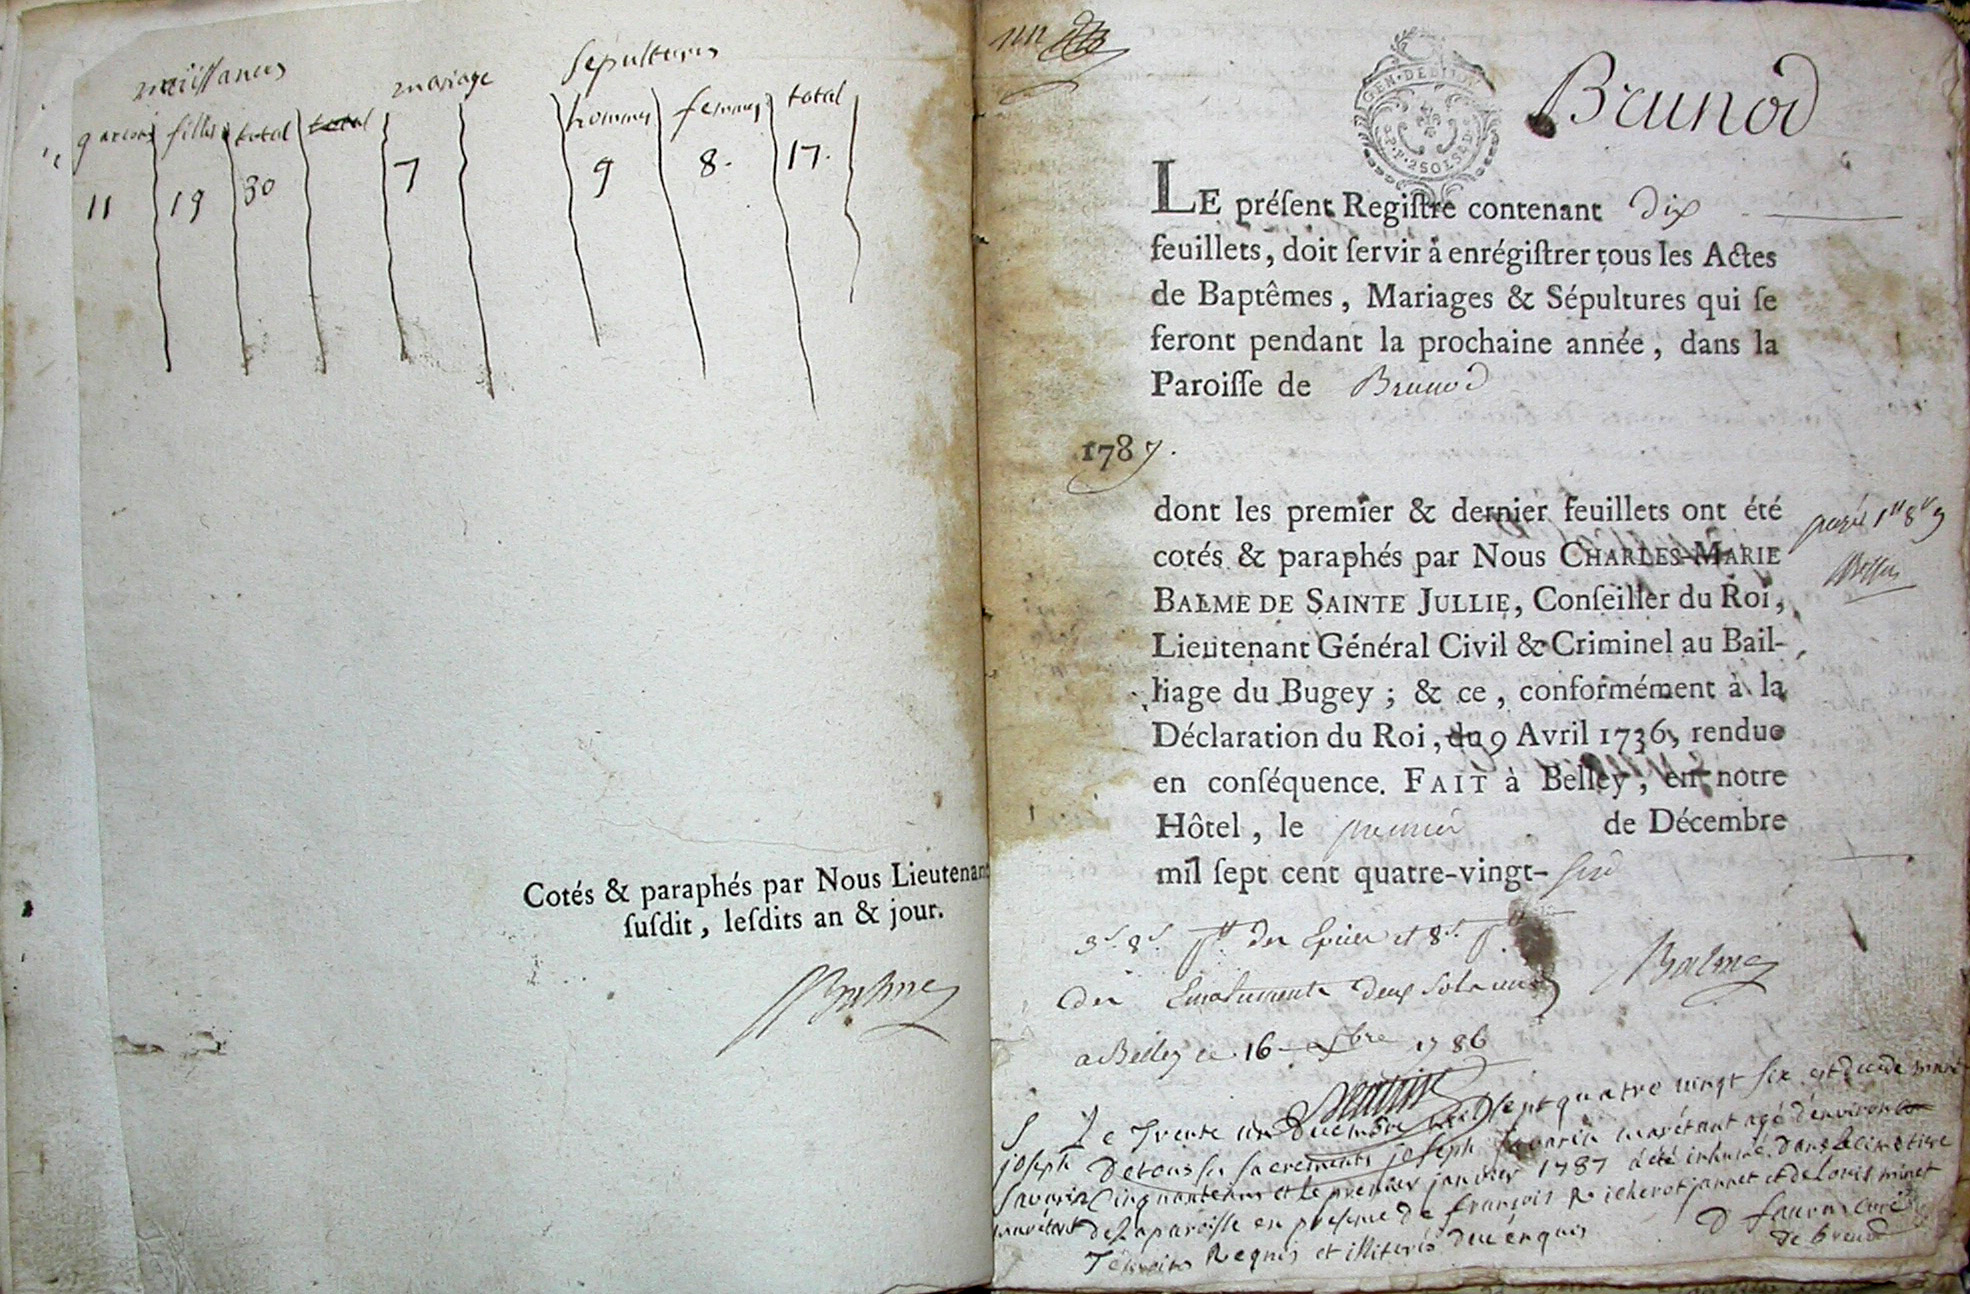 naissances mariage sepultures
garcons filles total total hommes femmes total
11 19 30 7 9 8. 17.
Cotés & paraphés par Nous Lieutenant
ſuſdit, leſdits an & jour.
Balme
Brunod
GEN. DE DIJON
P.P. 2 SOLS 4 D.
LE préſent Regiſtre contenant dix
feuillets, doit ſervir à enrégiſtrer tous les Actes
de Baptêmes, Mariages & Sépultures qui ſe
feront pendant la prochaine année, dans la
Paroiſſe de Brunod
1787.
dont les premier & dernier feuillets ont été
cotés & paraphés par Nous CHARLES-MARIE
BALME DE SAINTE JULLIE, Conſeiller du Roi,
Lieutenant Général Civil & Criminel au Bail-
liage du Bugey; & ce, conformément à la
Déclaration du Roi, du 9 Avril 1736, rendue
en conſéquence. FAIT à Belley, en notre
Hôtel, le premier de Décembre
mil ſept cent quatre-vingt-
3s. 8d. et 8s.
Emoluments deux sols
Balme
a Belley ce 16 xbre 1786
Le Trente un Decembre mil sept quatre vingt six est decede muni
joseph De tous les sacrements joseph savarin marétant agé d'environ
savarin Cinquante ans et le premier janvier 1787 a été inhumé dans le cimetiere
marétant de la paroisse en presence de françois Richerot jannet et de Louis minet
Témoins Requis et illiterés de ce enquis D favre curé
de brenod